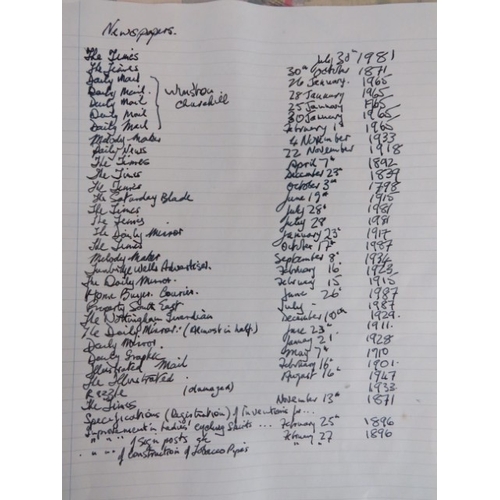 Newspapers.
The Times July 30th 1981
The Times 30th October 1871
Daily Mail 26 January. 1965
Daily Mail. 28 January 1965
Daily Mail 25 January 1965
Daily Mail 30 January 1965
Daily Mail February 1st 1965
Winston Churchill
Melody-Maker 4 November 1933
Daily News 22 November 1918
The Times April 7th 1892
The Times December 23rd 1839
The Times October 3rd 1798
The Saturday Blade June 19th 1910
The Times July 28th 1981
The Times July 28 1981
The Daily Mirror January 23rd 1917
The Times October 17th 1987
Melody Maker September 8th 1934
Tunbridge Wells Advertiser. February 16 1923
The Daily Mirror. February 15 1915
Home Buyer Courier. June 26th 1987
Property South East July - 1987
The Nottingham Guardian December 10th 1929
The Daily Mirror. (Almost in half) June 23rd 1911
Daily Mirror. January 21 1928
Daily Graphic May 7th 1910
Illustrated Mail February 16th 1901
The Illustrated. August 16th 1947
(damaged) 1933
The Times November 13th 1871
Specifications (Registration) of inventions for...
Improvement in ladies cycling skirts ... February 25th 1896
" " " of sign posts etc February 27 1896
" " of construction of Tobacco Pipes " " "